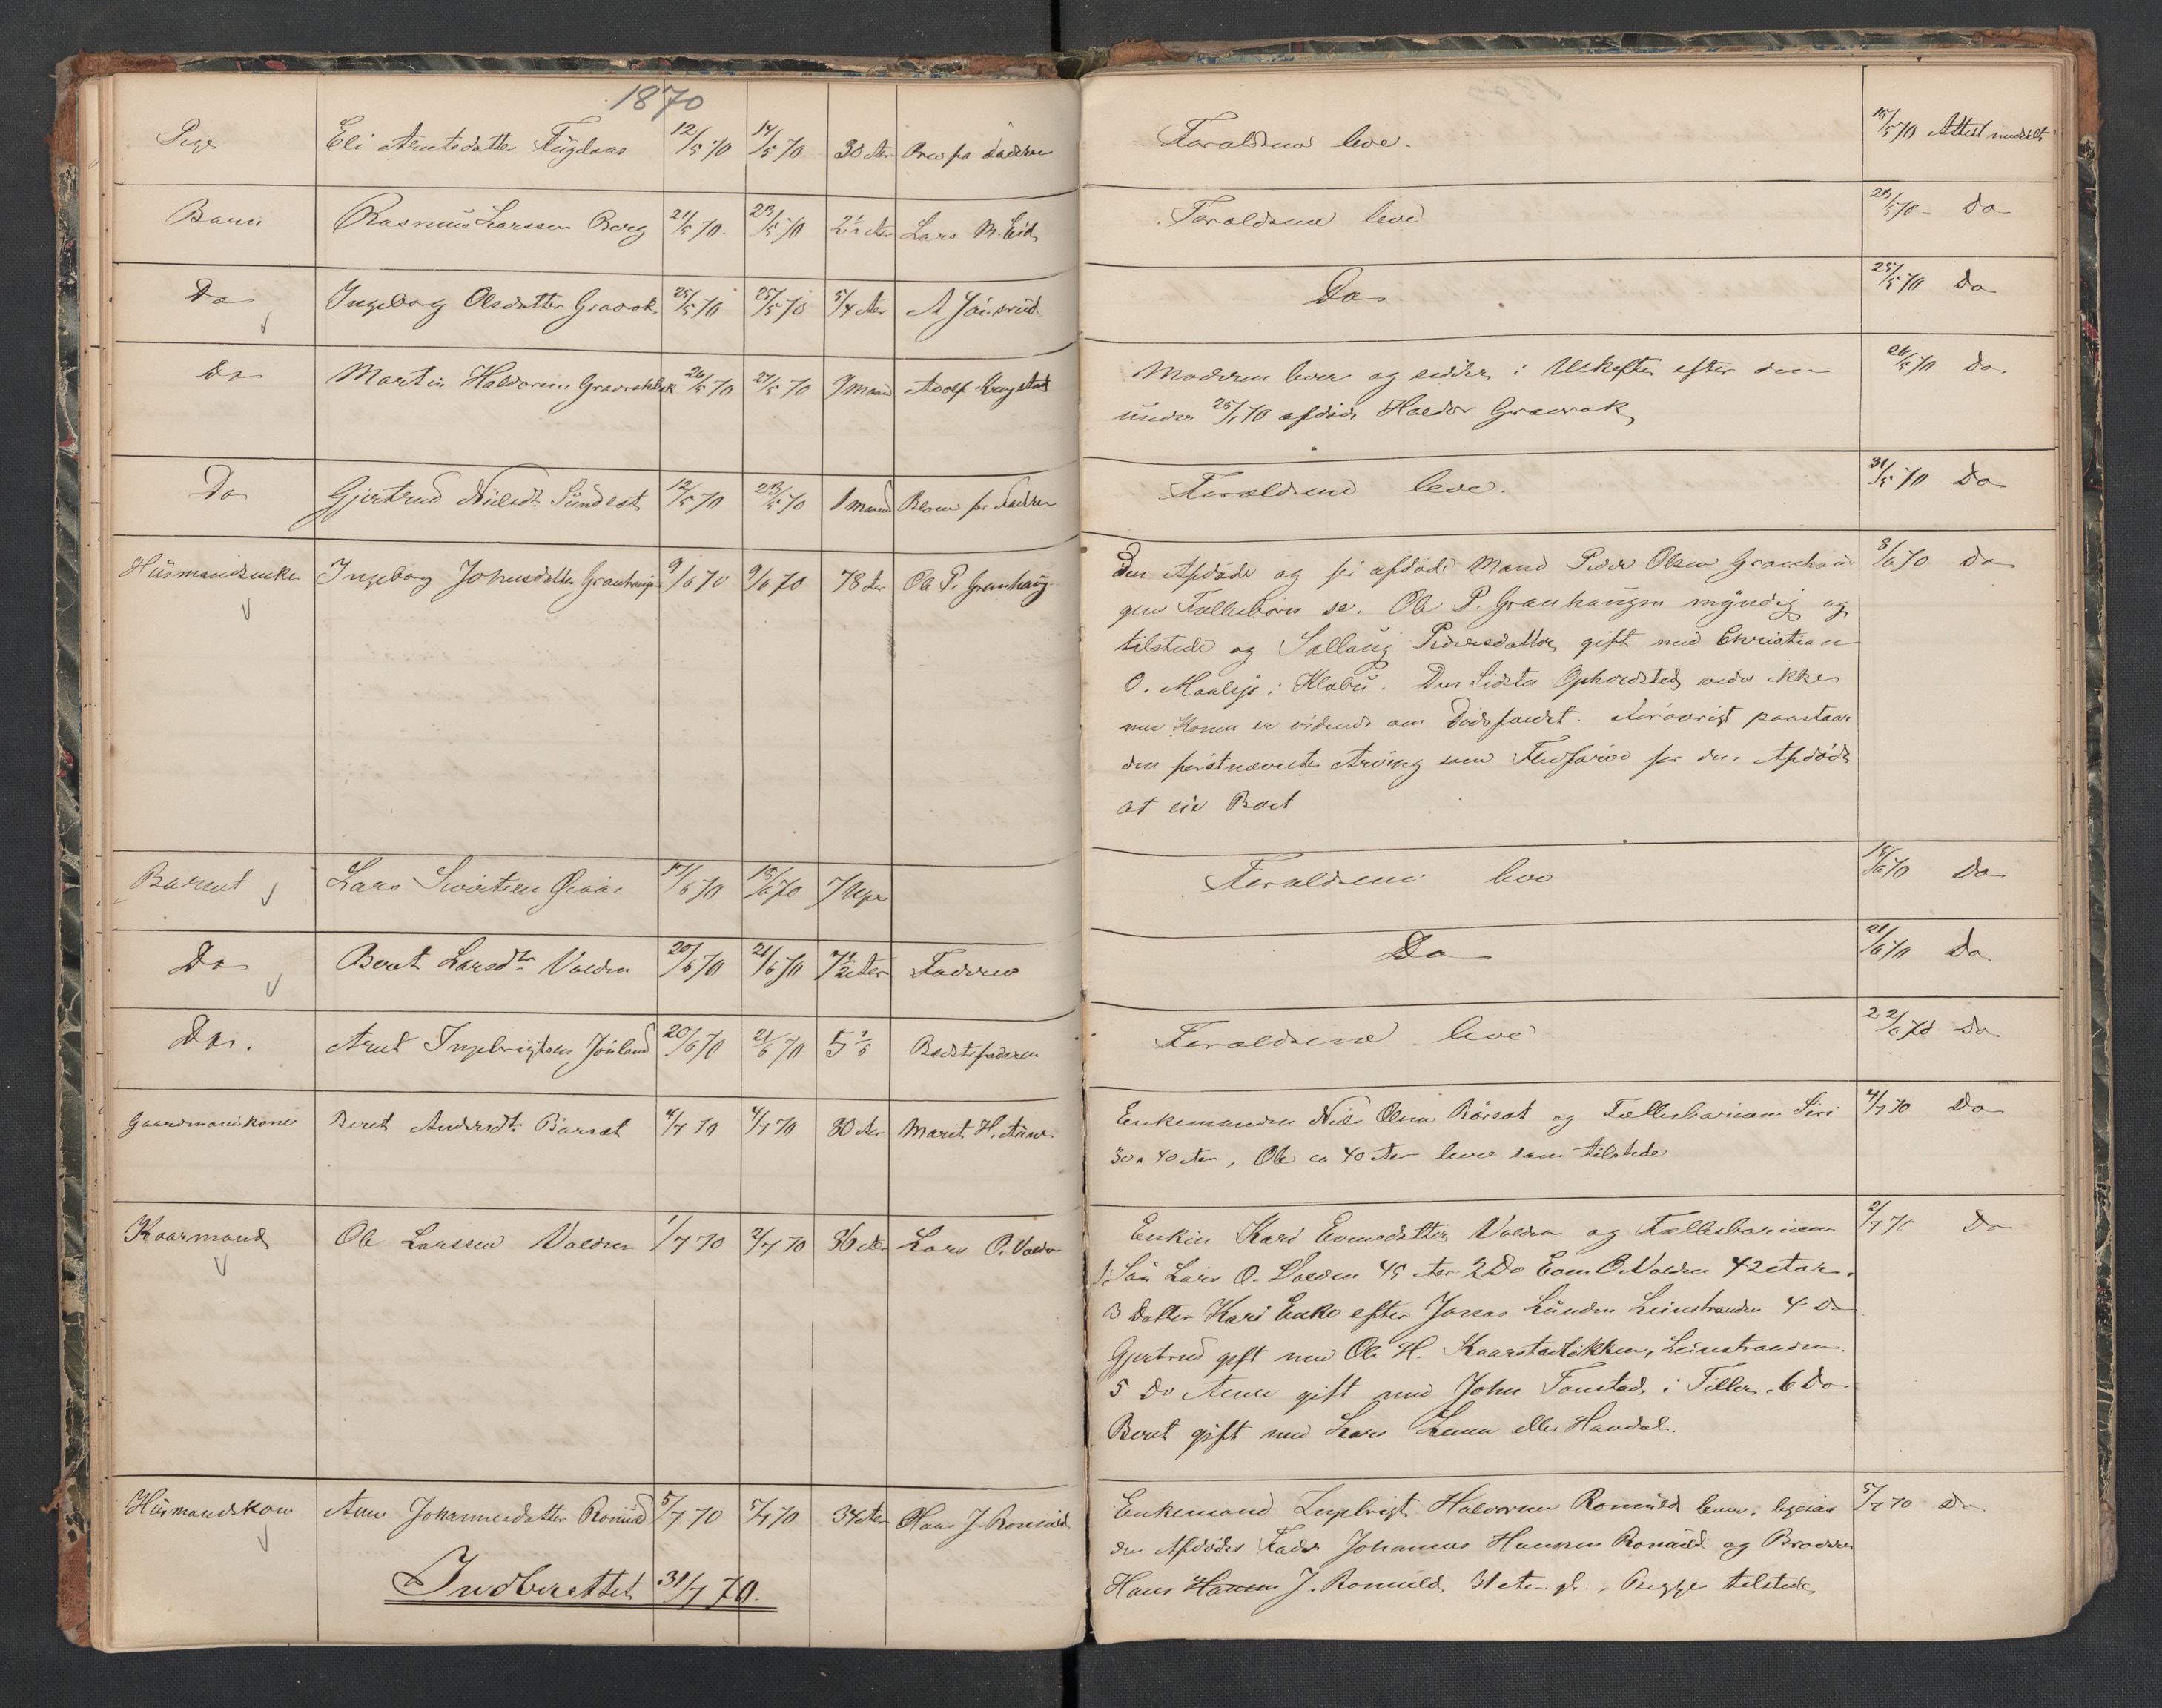 1870
Pige Eli Arntsdatter Fuglaas 12/5 70 14/5 70 30 Aar Brev fra Faderen Forældrene leve. 15/5 70 Attest meddelt
Barn Rasmus Larssen Berg 21/5 70. 23/5 70 2½ Aar Lars M. Eid Forældrene leve 23/5 70 Do
Do Ingeborg Olsdatter Graorok 25/5 70 25/5 70 5/4 Aar A Jönsrud Do 25/5 70 Do
Do Martin Haldorsen Graorok 26/5 70 27/5 70 9 Maaned Adolf Krogstad Moderen lever og sidder i Uskifte efter den 26/5 70 Do
under 25/1 70 afdöde Haldor Graorok
Do Gjertrud Nielsdt. Sundest 12/5 70 23/5 70 1 Maaned Faderen Forældrene leve. 31/5 70 Do
Husmandsenke Ingeborg Johnsdatter Granhaugen 9/6 70 9/6 70 78 Aar Ole P. Granhaug Den Afdöde og för afdöde Mand Peder Olsen Granhau 8/6 70 Do
gens Fællesbörn se. Ole P. Granhaugen myndig og
tilstede og Sollaug Pedersdatter gift med Christian
O. Maalsjö i Klæbu. Den Sidstes Opholdsted vides ikke
men Konen er vidende om Dödsfaldet. Forövrigt paastaar
den förstnævnte Arving som Fledförer for den Afdöde
at eie Boet
Barnet Lars Sivertsen 17/6 70 18/6 70 7 Uger Forældrene leve 18/6 70 Do
Do Beret Larsdtr Volden 20/6 70 21/6 70 7½ Aar Faderen Do 21/6 70 Do
Do. Arnt Ingebrigtsen Jönland 20/6 70 21/6 70 5 Bedstefaderen Forældrene leve 22/6 70 Do
Gaardmandskone Beret Andersdt. Börsat 4/7 70 4/7 70 80 Aar Marit H. Enkemanden Niels Olsen Börsat og Fællesbarnam Siri 4/7 70 Do
30 a 40 Aar, Ole ca 40 Aar leve sam tilstede
Kaarmand Ole Larssen Volden 1/7 70 2/7 70 86 Aar Lars O. Volden Enken Kari Evensdatter Volden og Fællesbarnam 2/7 70 Do
1, Sön Lars O. Volden 45 Aar 2 Do Even O. Volden 42 Aar.
3 Datter Kari Enke efter Jonas Lunden Leinstranden 4 Do
Gjertrud gift med Ole H. Kaarstadlökken, Leinstranden.
5 Do Anne gift med John Tonstad i Tiller. 6 Do
Beret gift med Lars eller Havdal.
Husmandskone Ane Johannesdatter Romuld 5/7 70 5/7 70 34 Aar Hans J. Romuld Enkemand Ingebrigt Halvorsen Romuld lever, ligesaa 5/7 70 Do
den Afdödes Fader Johannes Hanssen Romuld og Broder
Indberettet 31/7 70. Hans Hansen J. Romuld 31 Aar gl., Begge tilstede